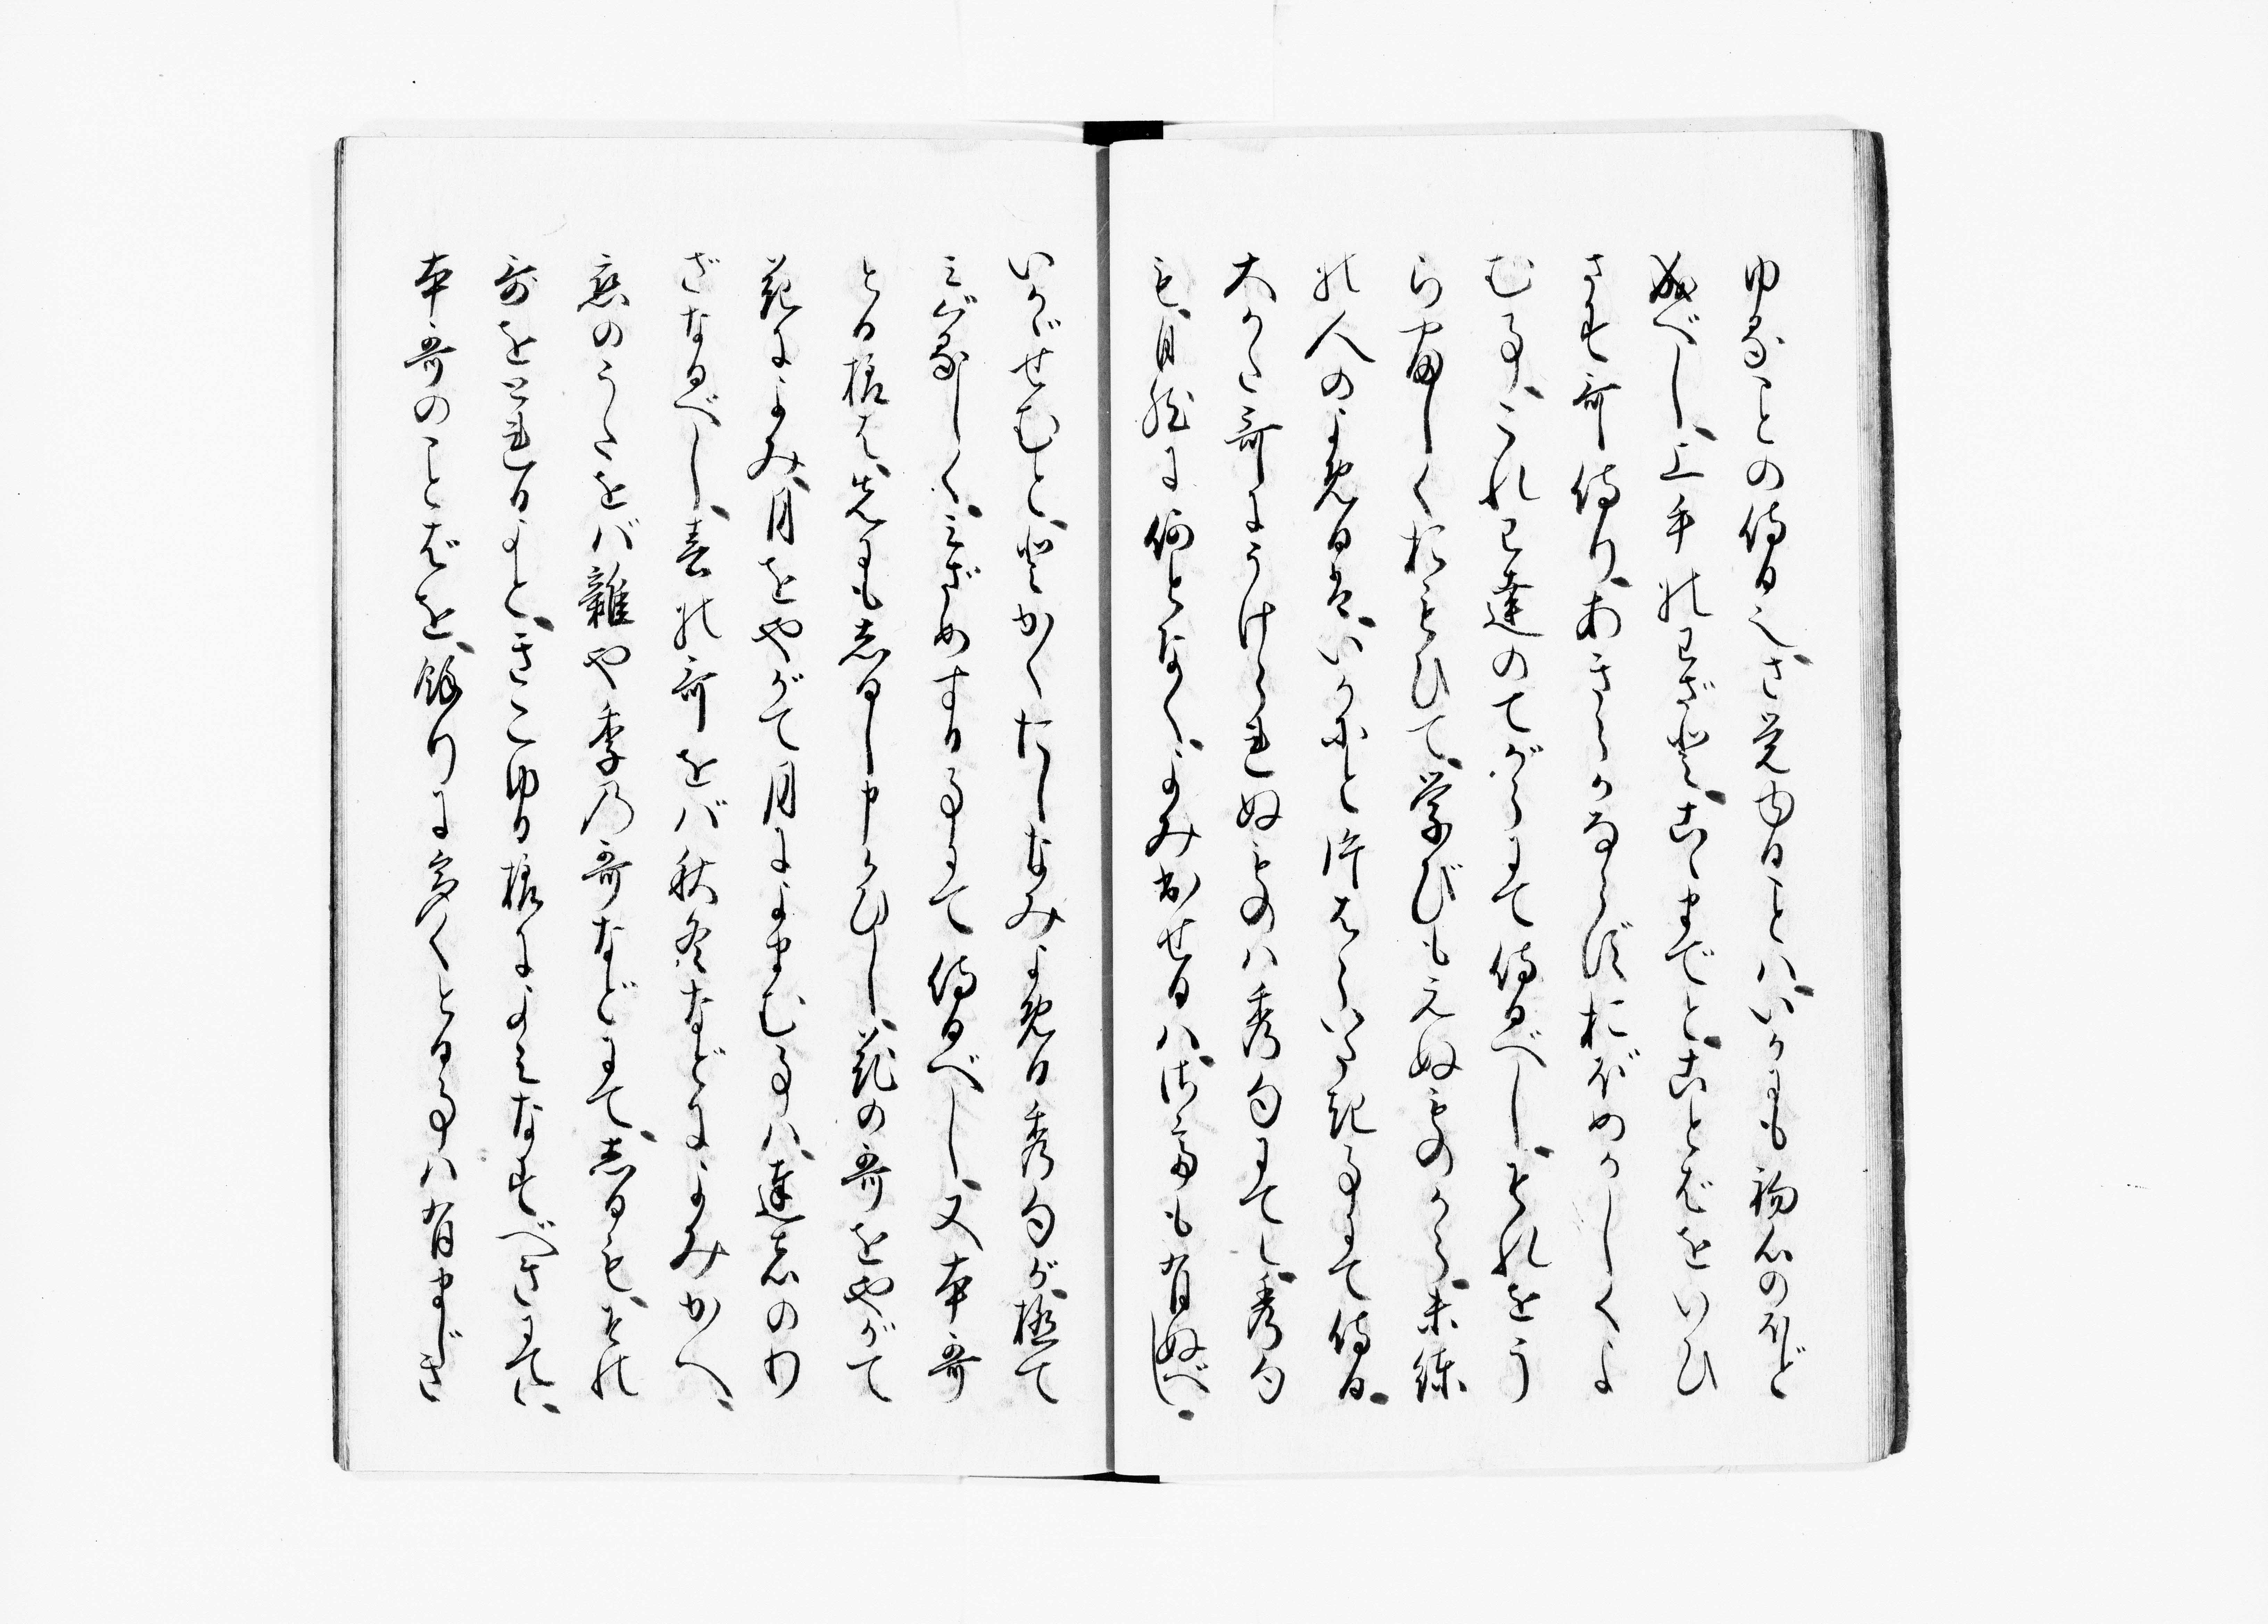 ゆることの侍る也、さ覚ゆることハ、いかにも初心のほど
ぬべし、上手のわざと、こゝまでと、ことばをいひ
さす哥侍り、あきらかならず、おぼめかしくよ
む事、これ已達のてがらにて侍るべし、それをう
ら山しくおもひて、学びもえぬもののから、未練
の人のよめるは、いかほど片はらいたき事にて侍る、
大かた哥にうけられぬものハ秀句にて候、秀句
も、自然に何となく、よみいだせるハ、さても有ぬべし、
いかゞせむと、とかくたしなみよめる秀句が、極て
みぐるしく、みざめする事にて侍るべし、又本哥
とる様は、先にもしるし申候ひし、花の哥をやがて
花によみ、月をやがて月によまむ事ハ、達者のわ
ざなるべし、春の哥をバ秋冬などによみかへ、
恋のうたをバ雑や季の哥などにて、しるも、その
哥をとれるよと、きこゆる様によみなすべきにて候、
本哥のことばを、餘りに多くとる事ハ有まじき